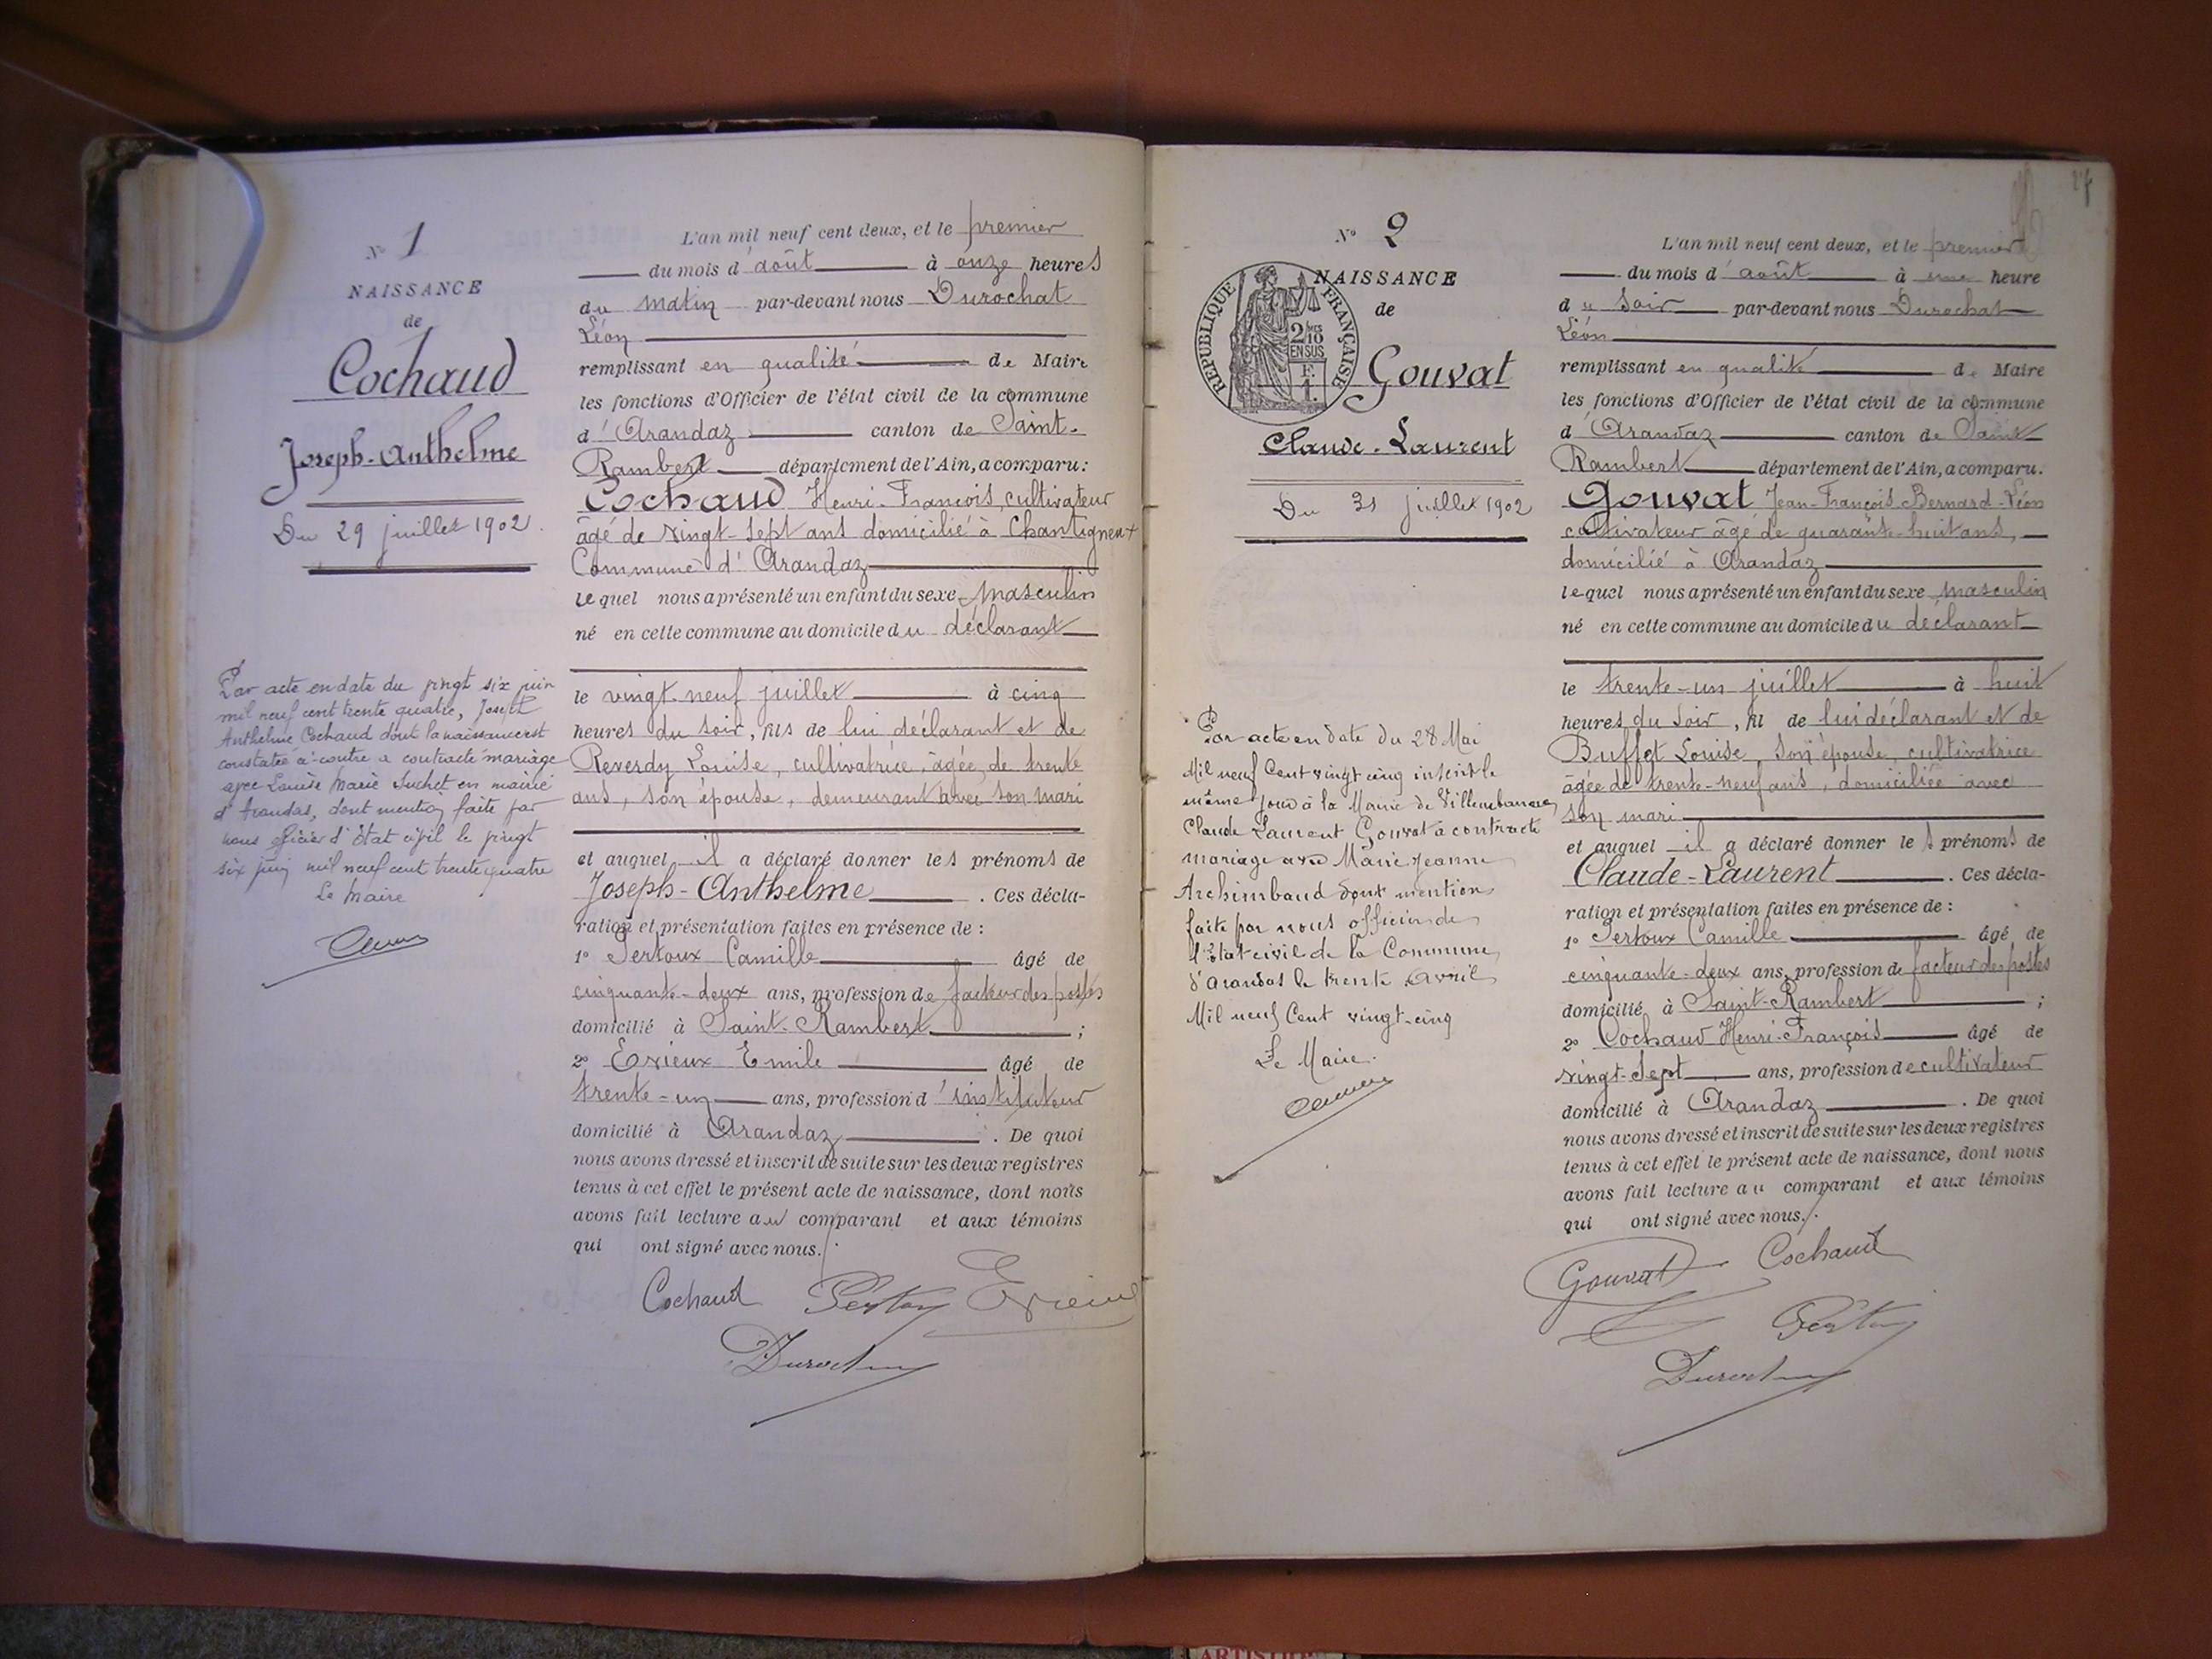 N° 1
NAISSANCE
de
Cochaud
Joseph-Anthelme
Du 29 juillet 1902.
Par acte en date du vingt six juin
mil neuf cent trente quatre, Joseph
Anthelme Cochaud dont la naissance est
constatée ci-contre a contracté mariage
avec Louise Marie Suchet en mairie
d'Arandas, dont mention faite par
nous officier d'État civil le vingt
six juin mil neuf cent trente quatre
Le Maire
L'an mil neuf cent deux, et le premier
du mois d'août à onze heures
du matin par-devant nous Durochat
Léon
remplissant en qualité de Maire
les fonctions d'Officier de l'état civil de la commune
d'Arandaz canton de Saint-
Rambert département de l'Ain, a comparu:
Cochaud Henri-François, cultivateur
âgé de vingt-sept ans domicilié à Chantigneux
Commune d'Arandaz
lequel nous a présenté un enfant du sexe masculin
né en cette commune au domicile du déclarant
le vingt-neuf juillet à cinq
heures du soir, fils de lui déclarant et de
Reverdy Louise, cultivatrice, âgée de trente
ans, son épouse, demeurant avec son mari
et auquel il a déclaré donner les prénoms de
Joseph-Anthelme. Ces décla-
ration et présentation faites en présence de :
1° Pertoux Camille âgé de
cinquante-deux ans, profession de facteur des postes
domicilié à Saint-Rambert ;
2° Erieux Emile âgé de
trente-un ans, profession d'instituteur
domicilié à Arandaz. De quoi
nous avons dressé et inscrit de suite sur les deux registres
tenus à cet effet le présent acte de naissance, dont nous
avons fait lecture au comparant et aux témoins
qui ont signé avec nous.
Cochaud Erieux
N° 2
NAISSANCE
de
RÉPUBLIQUE FRANÇAISE
2/10
EN SUS
F.
1.
Gouvat
Claude-Laurent
Du 31 juillet 1902
Par acte en date du 28 Mai
Mil neuf Cent vingt cinq inscrit le
même jour à la Mairie de Villeurbanne,
Claude Laurent Gouvat a contracté
mariage avec Marie Jeanne
Archimbaud dont mention
faite par nous officier de
l'État civil de la Commune
d'Arandas le trente Avril
Mil neuf Cent vingt-cinq
Le Maire.
L'an mil neuf cent deux, et le premier
du mois d'août à une heure
du soir par-devant nous Durochat
Léon
remplissant en qualité de Maire
les fonctions d'Officier de l'état civil de la commune
d'Arandaz canton de Saint
Rambert département de l'Ain, a comparu.
Gouvat Jean-François-Bernard-Léon
cultivateur âgé de quarante-huit ans,
domicilié à Arandaz
lequel nous a présenté un enfant du sexe masculin
né en cette commune au domicile du déclarant
le trente-un juillet à huit
heures du soir, fil de lui déclarant et de
Buffet Louise, son épouse, cultivatrice
âgée de trente-neuf ans, domiciliée avec
son mari
et auquel il a déclaré donner les prénoms de
Claude-Laurent. Ces décla-
ration et présentation faites en présence de :
1° Pertoux Camille âgé de
cinquante-deux ans, profession de facteur des postes
domicilié à Saint-Rambert ;
2° Cochaud Henri-François âgé de
vingt-sept ans, profession de cultivateur
domicilié à Arandaz. De quoi
nous avons dressé et inscrit de suite sur les deux registres
tenus à cet effet le présent acte de naissance, dont nous
avons fait lecture au comparant et aux témoins
qui ont signé avec nous.
Gouvat Cochaud
ARTISTI